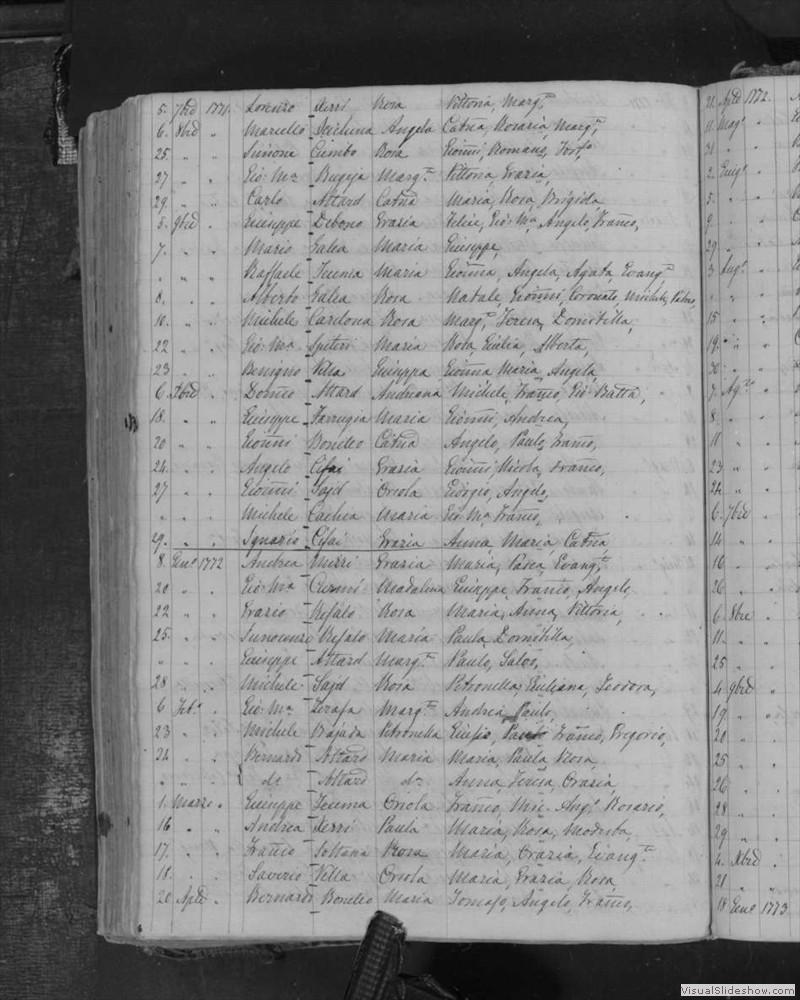 5. 7bre 1771. Lorenzo Xerri Rosa Vittoria, Marg.ta
6. 8bre " Marcello Angela Catna, Rosaria, Marg.ta,
25. " " Simone Cumbo Rosa Gionni, Romano,
27 " " Gio: Ma Bugeja Marg.ta Vittoria, Grazia,
29. " " Carlo Attard Catna Maria, Rosa, Brigida
5. 9bre " Giuseppe Debono Grazia Felice, Gio: Ma, Angelo, Franco,
7. " " Mario Galea Maria Giuseppe,
" " " Raffaele Teuma Maria Gionna, Angela, Agata, Evang.ta
8. " " Alberto Galea Rosa Natale, Gionni, Coronato, Michele, Pietro,
10. " " Michele Cardona Rosa Marg.ta, Teresa, Domitilla,
22 " " Gio: Ma Spiteri Maria Rosa, Giulia, Alberta,
23 " " Benigno Vella Giuseppa Gionna Maria, Angela,
6. Xbre " Domco Attard Andreana Michele, Franco, Gio: Batta,
18. " " Giuseppe Farrugia Maria Gionni, Andrea,
20 " " Gionni Bonello Catna Angelo, Paulo, Franco,
24. " " Angelo Cefai Grazia Gionni, Nicola, Franco,
27 " " Gionni Sajd Orsola Giorgio, Angelo,
" " " Michele Cachia Maria Gio: Ma, Franco,
29. " " Ignazio Cefai Grazia Anna, Maria, Catna
8. Genro 1772 Andrea Grazia Maria, Evang.ta
20 " " Gio: Ma Curmi Madalena Giuseppe, Franco, Angelo
22 " " Grazio Refalo Rosa Maria, Anna, Vittoria,
25. " " Innocenzo Refalo Maria Paula, Domitilla,
" " " Giuseppe Attard Marg.ta Paulo, Salvo,
28 " " Michele Sajd Rosa Petronella, Giuliana, Teodora,
6 Feb.o " Gio: Ma Zerafa Marg.ta Andrea, Paulo,
23 " " Michele Bajada Petronella Paulo, Franco, Gregorio,
24. " " Bernardo Attard Maria Maria, Paula, Rosa,
" " " { do Attard do Anna, Teresa, Grazia
1. Marzo " Giuseppe Teuma Orsola Franco, Mic: Ang.o, Rosario,
16 " " Andrea Xerri Paula Maria, Rosa, Modesta,
17. " " Franco Soltana Rosa Maria, Grazia, Evang.ta
18. " " Saverio Vella Orsola Maria, Grazia, Rosa
20 Aple " Bernardo Bonello Maria Tomaso, Angelo, Franco,
21. Aple 1772.
11. Mag.o "
31 " "
2. Giug.o "
5. " "
9 " "
29 " "
3 Lug.o "
" " "
15 " "
19. " "
30. " "
7. Ag.to "
8. " "
11 " "
23 " "
24. " "
6. 7bre "
14 " "
16 " "
26 " "
6. 8bre "
11. " "
25 " "
4. 9bre "
19 " "
20 " "
25 " "
26 " "
28 " "
29 " "
4. Xbre "
21 " "
18 Geno 1773
VisualSlideshow.com